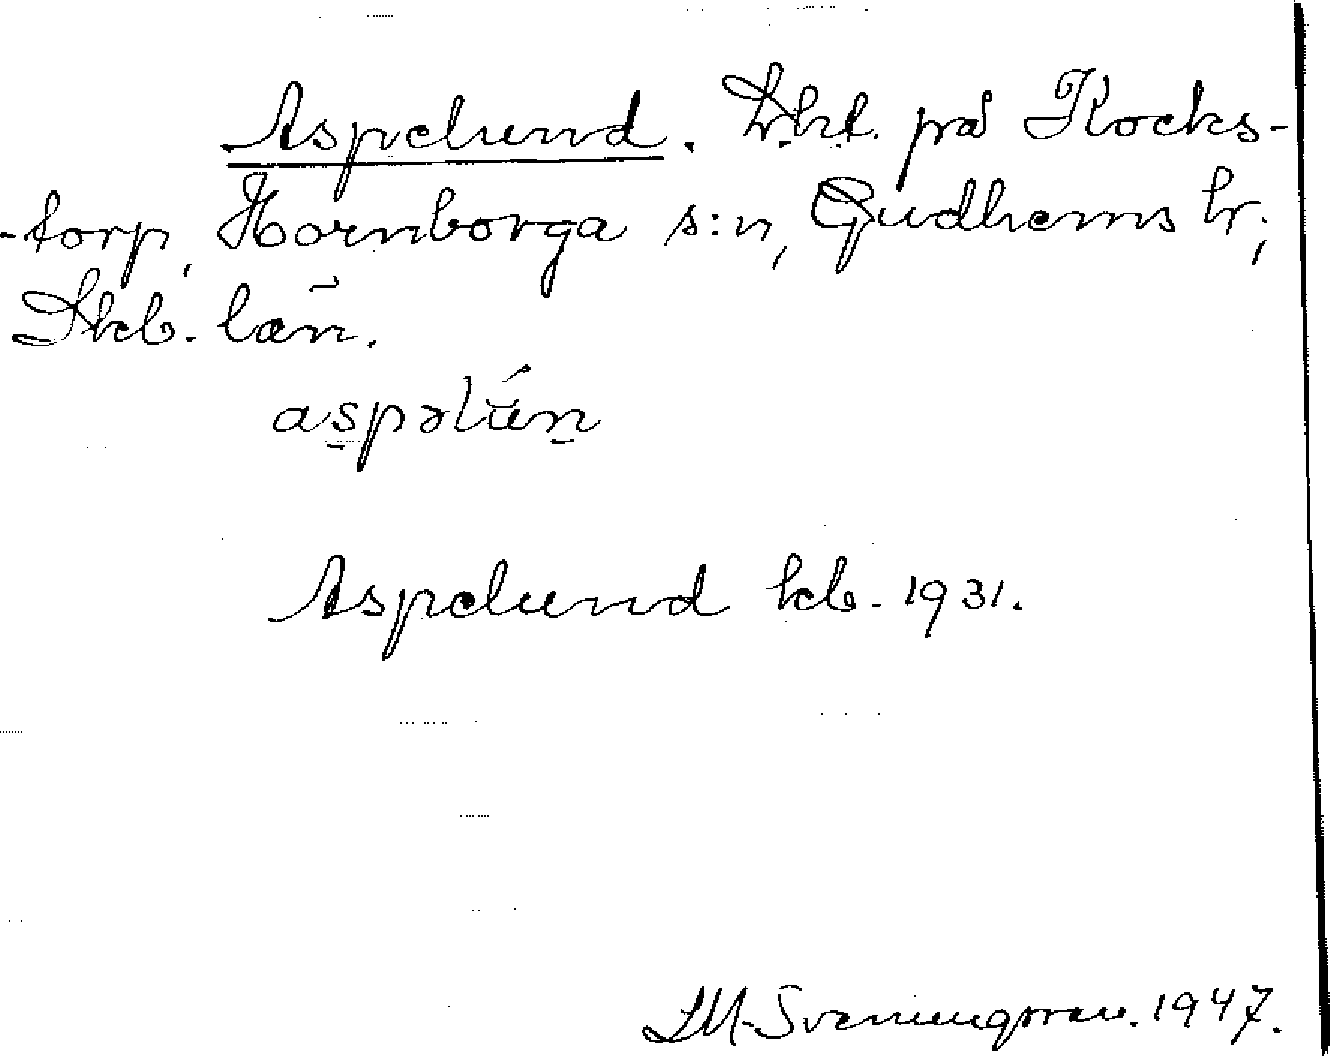 Aspelund. Lht. på Kocks-
-torp, Hornborga s:n, Gudhems hr,
Skb. län.
aspəlún
Aspelund kb. 1931.
Sveningsson. 1947.